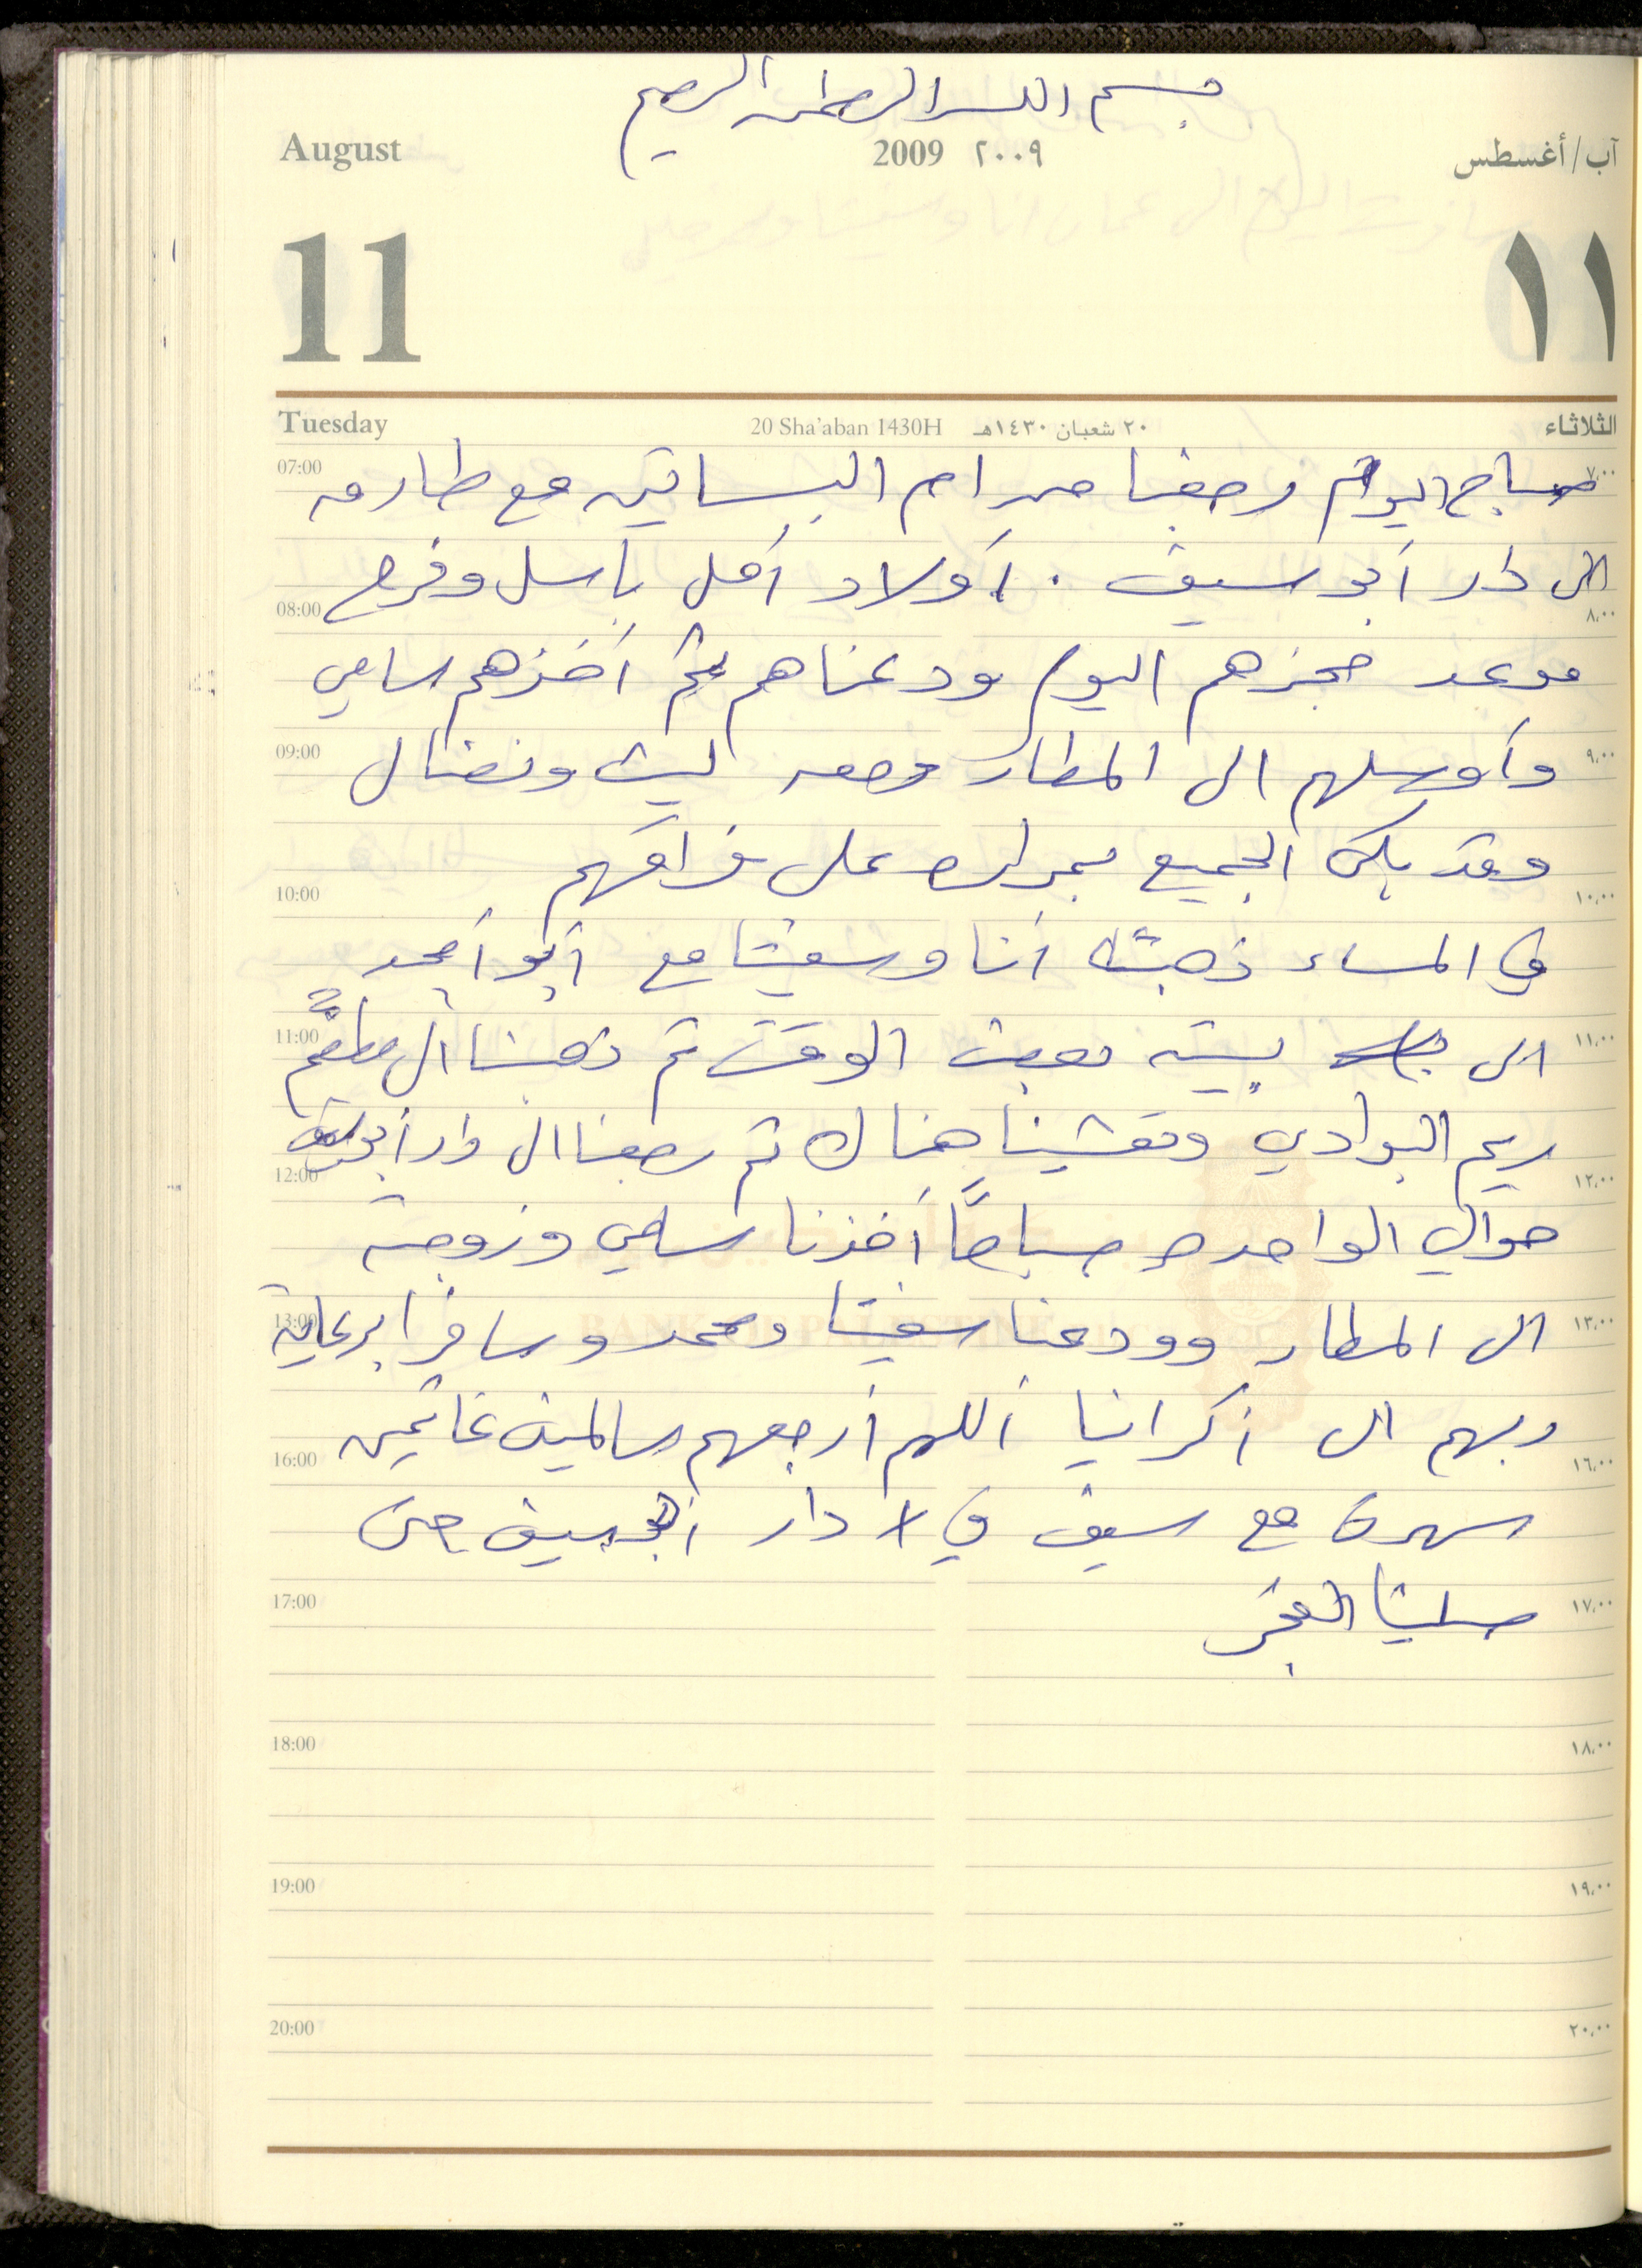 بسم الله الرحمن الرحيم
August 2009 ٢٠٠٩ آب/أغسطس
11 ١١
Tuesday 20 Sha'aban 1430H ٢٠ شعبان ١٤٣٠هـ الثلاثاء
07:00 صباح اليوم رجعنا من ام البساتين مع طارق ٧,٠٠
الى دار أبو سيف . أولاد أمل باسل وفرح
08:00 ٨,٠٠
موعد حجزهم اليوم ودعناهم ثم أخذهم سامي
09:00 وأوصلهم الى المطار ومعه ليث ونضال ٩,٠٠
وقد بكى الجميع بمراره على فراقهم
10:00 ١٠,٠٠
في المساء ذهبت أنا وسفيتا مع أبو أمجد
11:00 الى بيته بعض الوقت ثم ذهبنا الى مطعم ١١,٠٠
ريم البوادي وتعشينا هناك ثم رجعنا الى دار أبو سيف
12:00 ١٢,٠٠
حوالي الواحده صباحاً أخذنا سامي وزوجته
13:00 الى المطار وودعنا سفيتا ومحمد وسافرا برعاية ١٣,٠٠
ربهم الى أكرانيا اللهم أرجعهم سالمين غانمين
16:00 ١٦,٠٠
سهرت مع سيف في دار أبو سيف حتى
17:00 صلينا الفجر ١٧,٠٠
18:00 ١٨,٠٠
19:00 ١٩,٠٠
20:00 ٢٠,٠٠
BANK OF PALESTINE